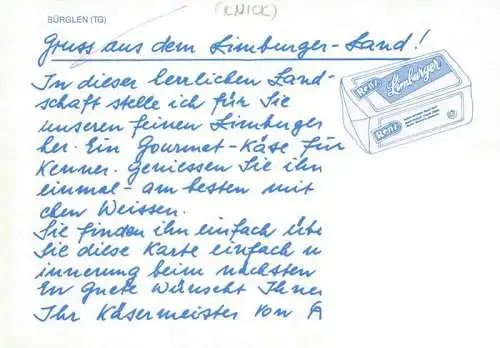 (KNICK)
BÜRGLEN (TG)
Gruss aus dem Limburger-Land!
In dieser herrlichen Land-
schaft stelle ich für Sie
unseren feinen Limburger
her. Ein Gourmet-Käse für
Kenner. Geniessen Sie ihn
einmal - am besten mit
chen Weissen.
Sie finden ihn einfach übe
Sie diese Karte einfach u
innerung beim nächsten
En Guete wünscht Ihnen
Ihr Käsermeister von
Renz
Limburger
Renz